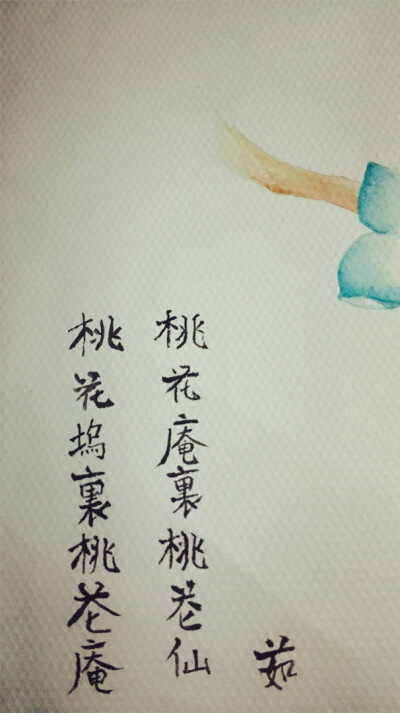 桃花塢裏桃花庵
桃花庵裏桃花仙
茹